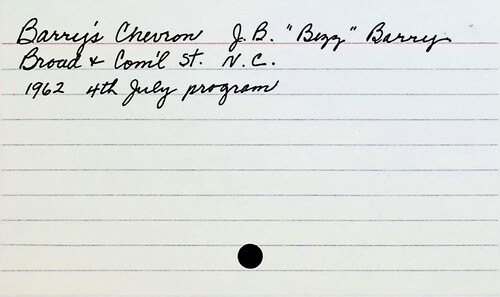 Barry's Chevron J.B. "Bizz" Barry
Broad & Com'l St. N.C.
1962 4th July program